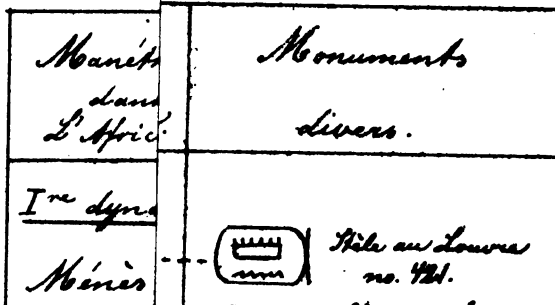 Manéth
dans
L'Afric.
Monuments
divers.
Ire dyna
Ménès
Stèle au Louvre
no. 421.